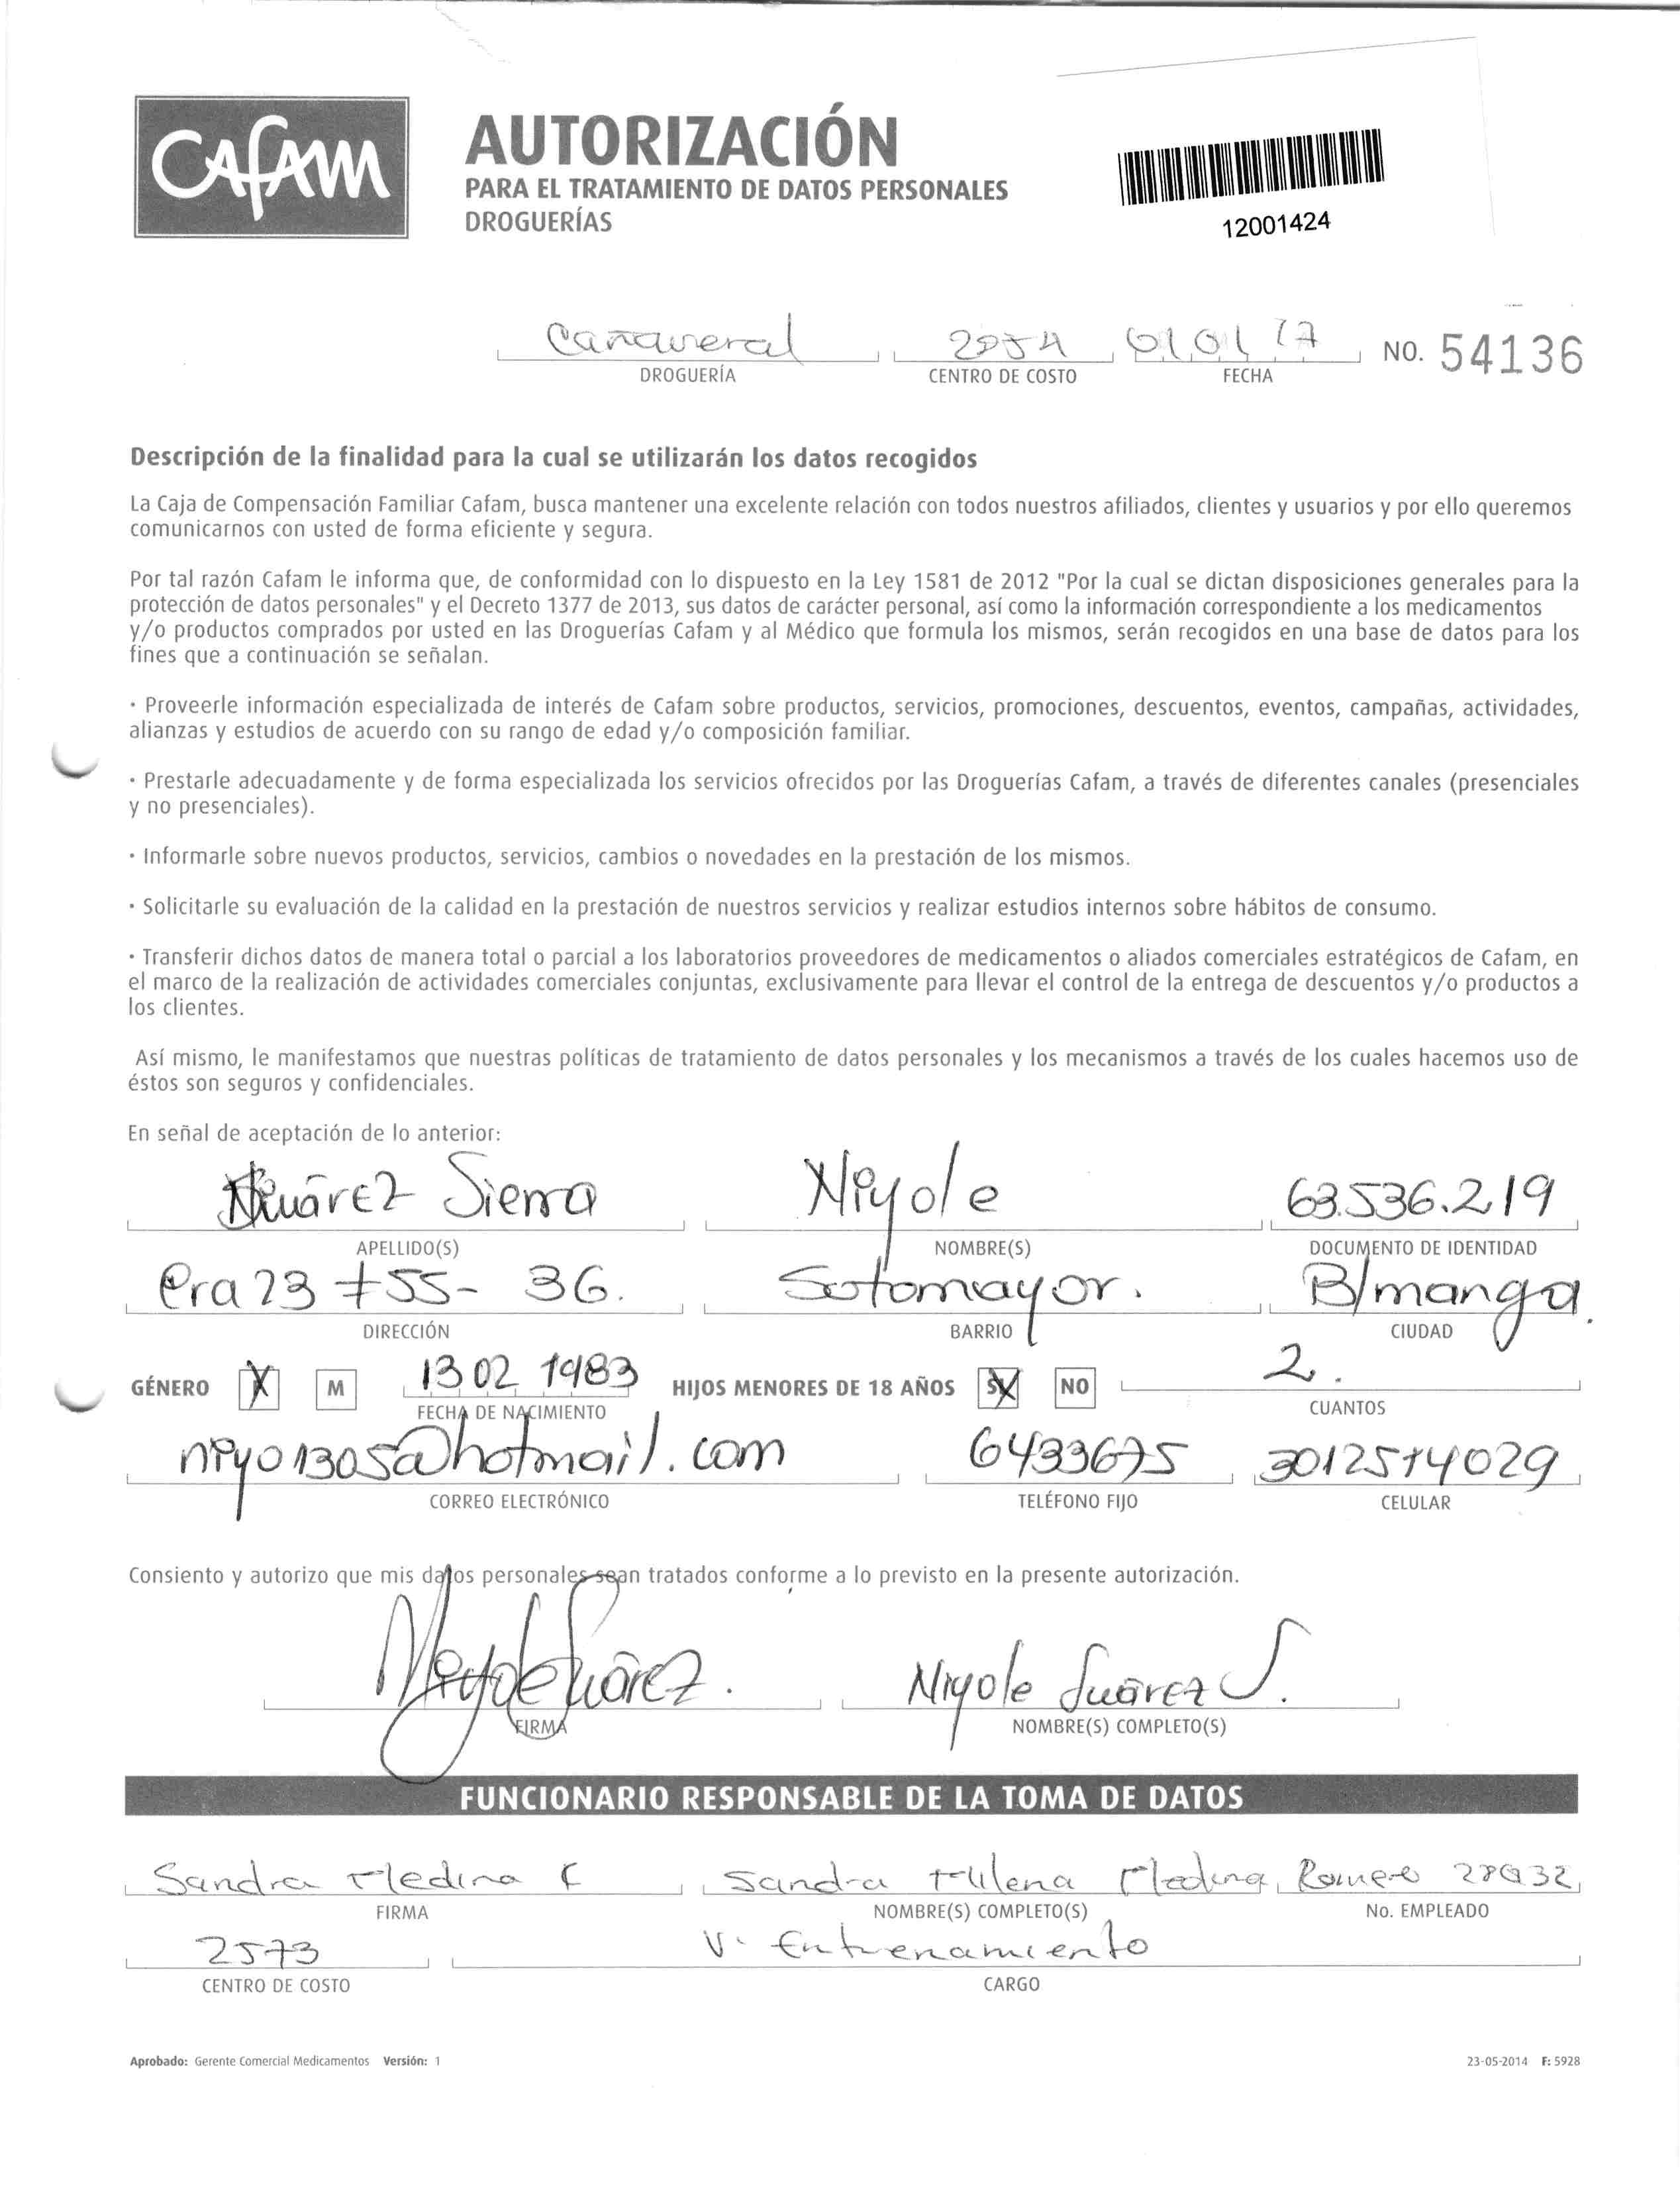 Cafam
AUTORIZACIÓN
PARA EL TRATAMIENTO DE DATOS PERSONALES
DROGUERÍAS
12001424
Cañaveral 01 01 17 NO. 54136
DROGUERÍA CENTRO DE COSTO FECHA
Descripción de la finalidad para la cual se utilizarán los datos recogidos
La Caja de Compensación Familiar Cafam, busca mantener una excelente relación con todos nuestros afiliados, clientes y usuarios y por ello queremos
comunicarnos con usted de forma eficiente y segura.
Por tal razón Cafam le informa que, de conformidad con lo dispuesto en la Ley 1581 de 2012 "Por la cual se dictan disposiciones generales para la
protección de datos personales" y el Decreto 1377 de 2013, sus datos de carácter personal, así como la información correspondiente a los medicamentos
y/o productos comprados por usted en las Droguerías Cafam y al Médico que formula los mismos, serán recogidos en una base de datos para los
fines que a continuación se señalan.
· Proveerle información especializada de interés de Cafam sobre productos, servicios, promociones, descuentos, eventos, campañas, actividades,
alianzas y estudios de acuerdo con su rango de edad y/o composición familiar.
· Prestarle adecuadamente y de forma especializada los servicios ofrecidos por las Droguerías Cafam, a través de diferentes canales (presenciales
y no presenciales).
· Informarle sobre nuevos productos, servicios, cambios o novedades en la prestación de los mismos.
· Solicitarle su evaluación de la calidad en la prestación de nuestros servicios y realizar estudios internos sobre hábitos de consumo.
· Transferir dichos datos de manera total o parcial a los laboratorios proveedores de medicamentos o aliados comerciales estratégicos de Cafam, en
el marco de la realización de actividades comerciales conjuntas, exclusivamente para llevar el control de la entrega de descuentos y/o productos a
los clientes.
Así mismo, le manifestamos que nuestras políticas de tratamiento de datos personales y los mecanismos a través de los cuales hacemos uso de
éstos son seguros y confidenciales.
En señal de aceptación de lo anterior:
Suárez Sierra Niyole 63.536.219
APELLIDO(S) NOMBRE(S) DOCUMENTO DE IDENTIDAD
Cra 23 # 55 - 36. Sotomayor. B/manga.
DIRECCIÓN BARRIO CIUDAD
GÉNERO X M 13 02 1983 HIJOS MENORES DE 18 AÑOS SI X NO 2.
FECHA DE NACIMIENTO CUANTOS
niyo1305@hotmail.com 6433675 3012514029
CORREO ELECTRÓNICO TELÉFONO FIJO CELULAR
Consiento y autorizo que mis datos personales sean tratados conforme a lo previsto en la presente autorización.
Niyole Suárez. Niyole Suárez S.
FIRMA NOMBRE(S) COMPLETO(S)
FUNCIONARIO RESPONSABLE DE LA TOMA DE DATOS
Sandra Medina Sandra Milena Medina Romero
FIRMA NOMBRE(S) COMPLETO(S) No. EMPLEADO
2573 V. Entrenamiento
CENTRO DE COSTO CARGO
Aprobado: Gerente Comercial Medicamentos Versión: 1 23-05-2014 F: 5928